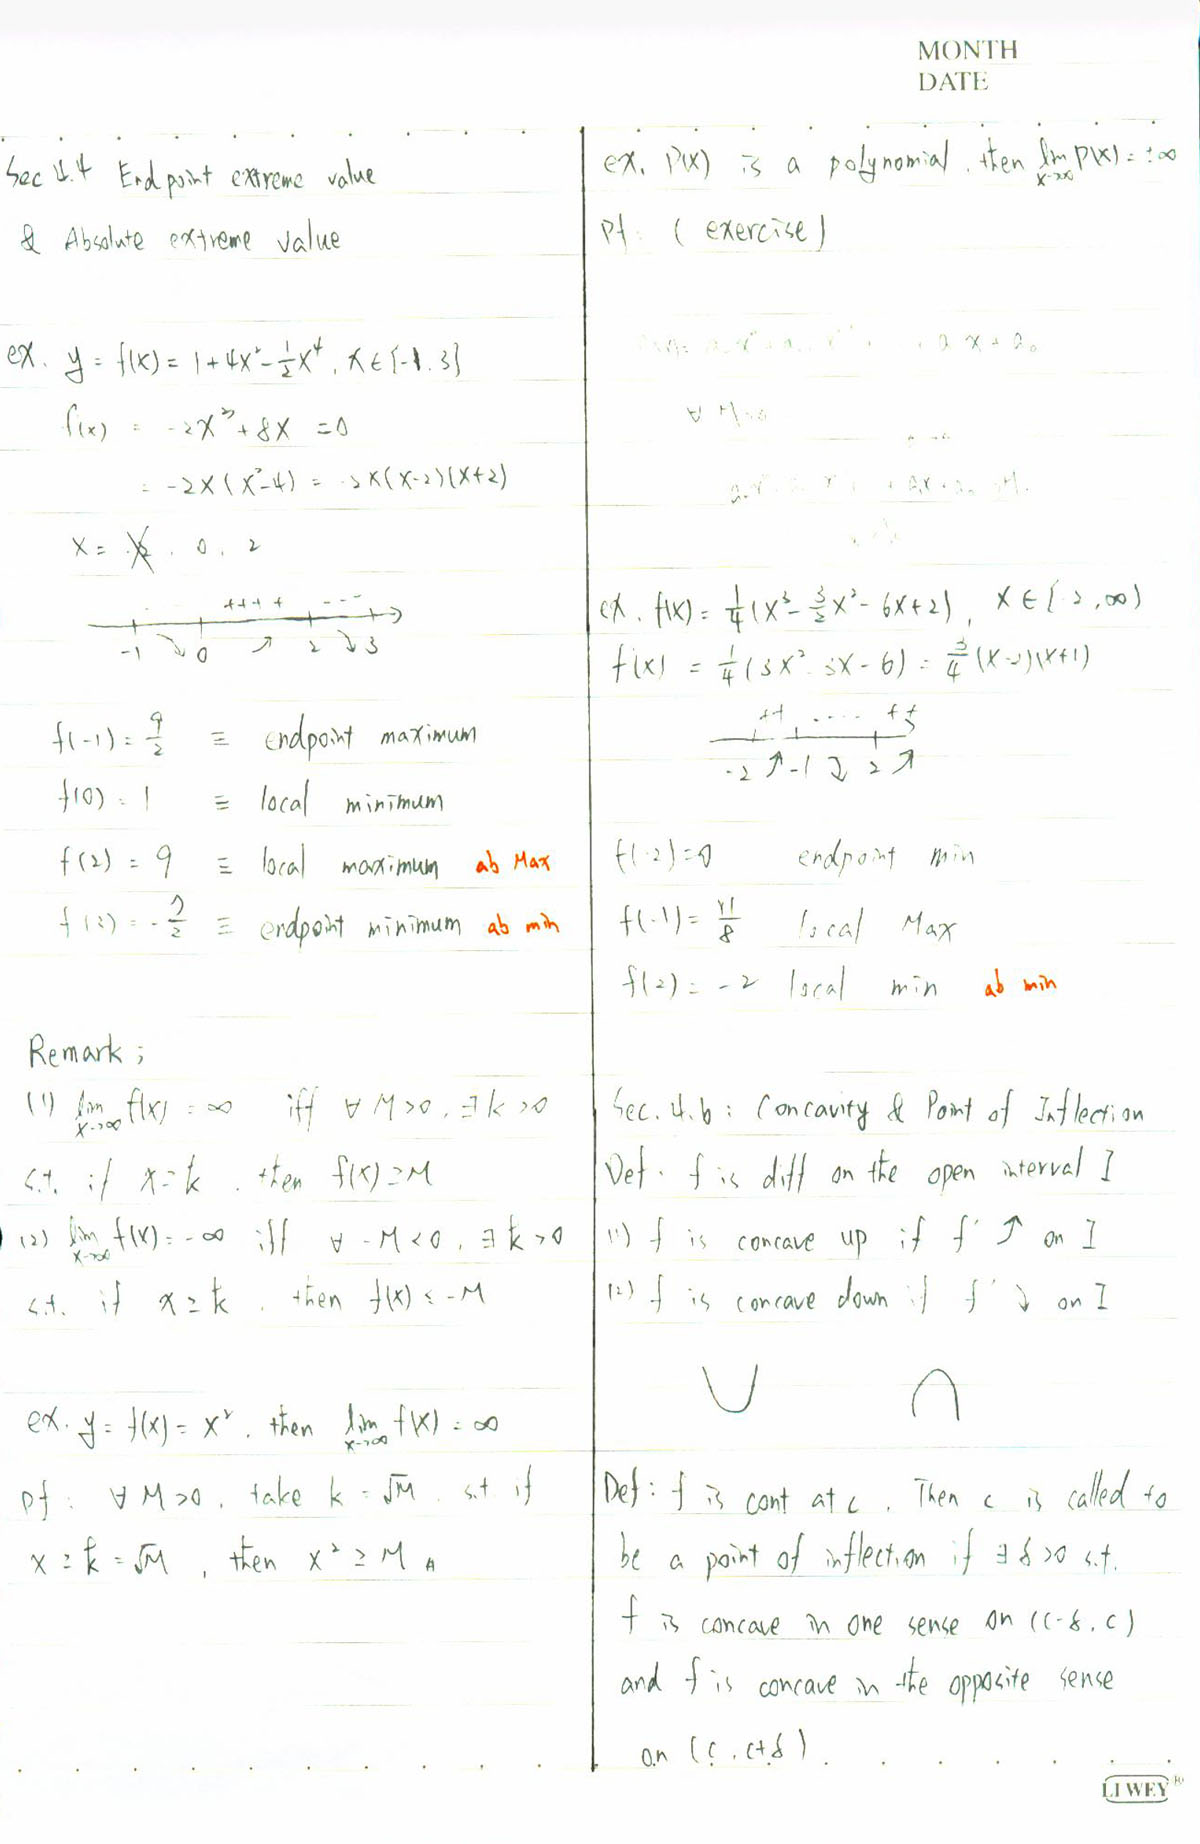 MONTH
DATE
Sec 4.4 Endpoint extreme value
& Absolute extreme value
ex. y = f(x) = 1 + 4x² - ½x⁴, x ∈ [-1, 3]
f'(x) = -2x³ + 8x = 0
= -2x(x²-4) = -2x(x-2)(x+2)
x = -2, 0, 2
++++ ---
-1 ↘ 0 ↗ 2 ↘ 3
f(-1) = 9/2 ≡ endpoint maximum
f(0) = 1 ≡ local minimum
f(2) = 9 ≡ local maximum ab Max
f(3) = -7/2 ≡ endpoint minimum ab min
Remark ;
(1) lim x→∞ f(x) = ∞ iff ∀ M>0, ∃ k>0
s.t. if x ≥ k, then f(x) ≥ M
(2) lim x→∞ f(x) = -∞ iff ∀ -M<0, ∃ k>0
s.t. if x ≥ k, then f(x) ≤ -M
ex. y = f(x) = x², then lim x→∞ f(x) = ∞
pf : ∀ M>0, take k = √M, s.t. if
x ≥ k = √M, then x² ≥ M
ex. P(x) is a polynomial, then lim x→∞ P(x) = ±∞
pf : (exercise)
ex. f(x) = ¼(x³ - 3/2x² - 6x + 2), x ∈ [-2, ∞)
f'(x) = ¼(3x² - 3x - 6) = ¾(x-2)(x+1)
++ .... ++
-2 ↗ -1 ↘ 2 ↗
f(-2) = 0 endpoint min
f(-1) = 11/8 local Max
f(2) = -2 local min ab min
Sec. 4.6 : Concavity & Point of Inflection
Def. f is diff on the open interval I
(1) f is concave up if f' ↗ on I
(2) f is concave down if f' ↘ on I
Def : f is cont at c. Then c is called to
be a point of inflection if ∃ δ>0 s.t.
f is concave in one sense on (c-δ, c)
and f is concave in the opposite sense
on (c, c+δ).
LI WEY ®